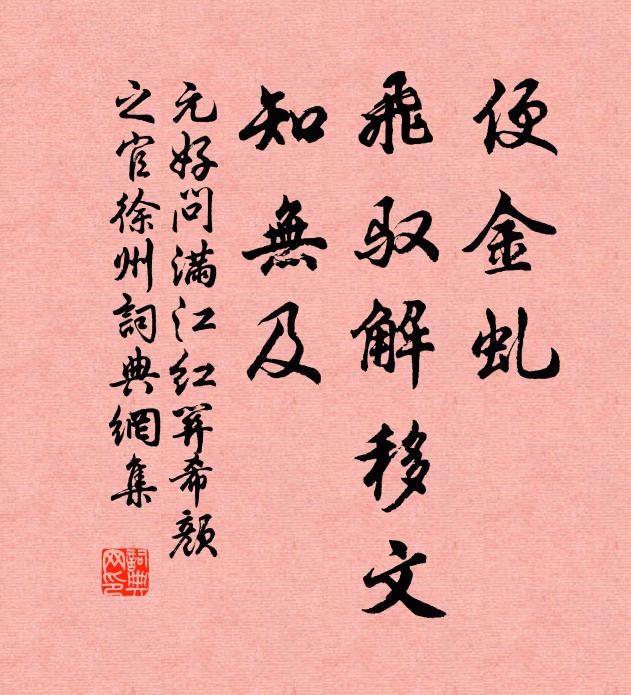 便金虬
飛馭解移文
知無及
元好問滿江紅羿希顔
之官徐州詞典網集
詞典网印